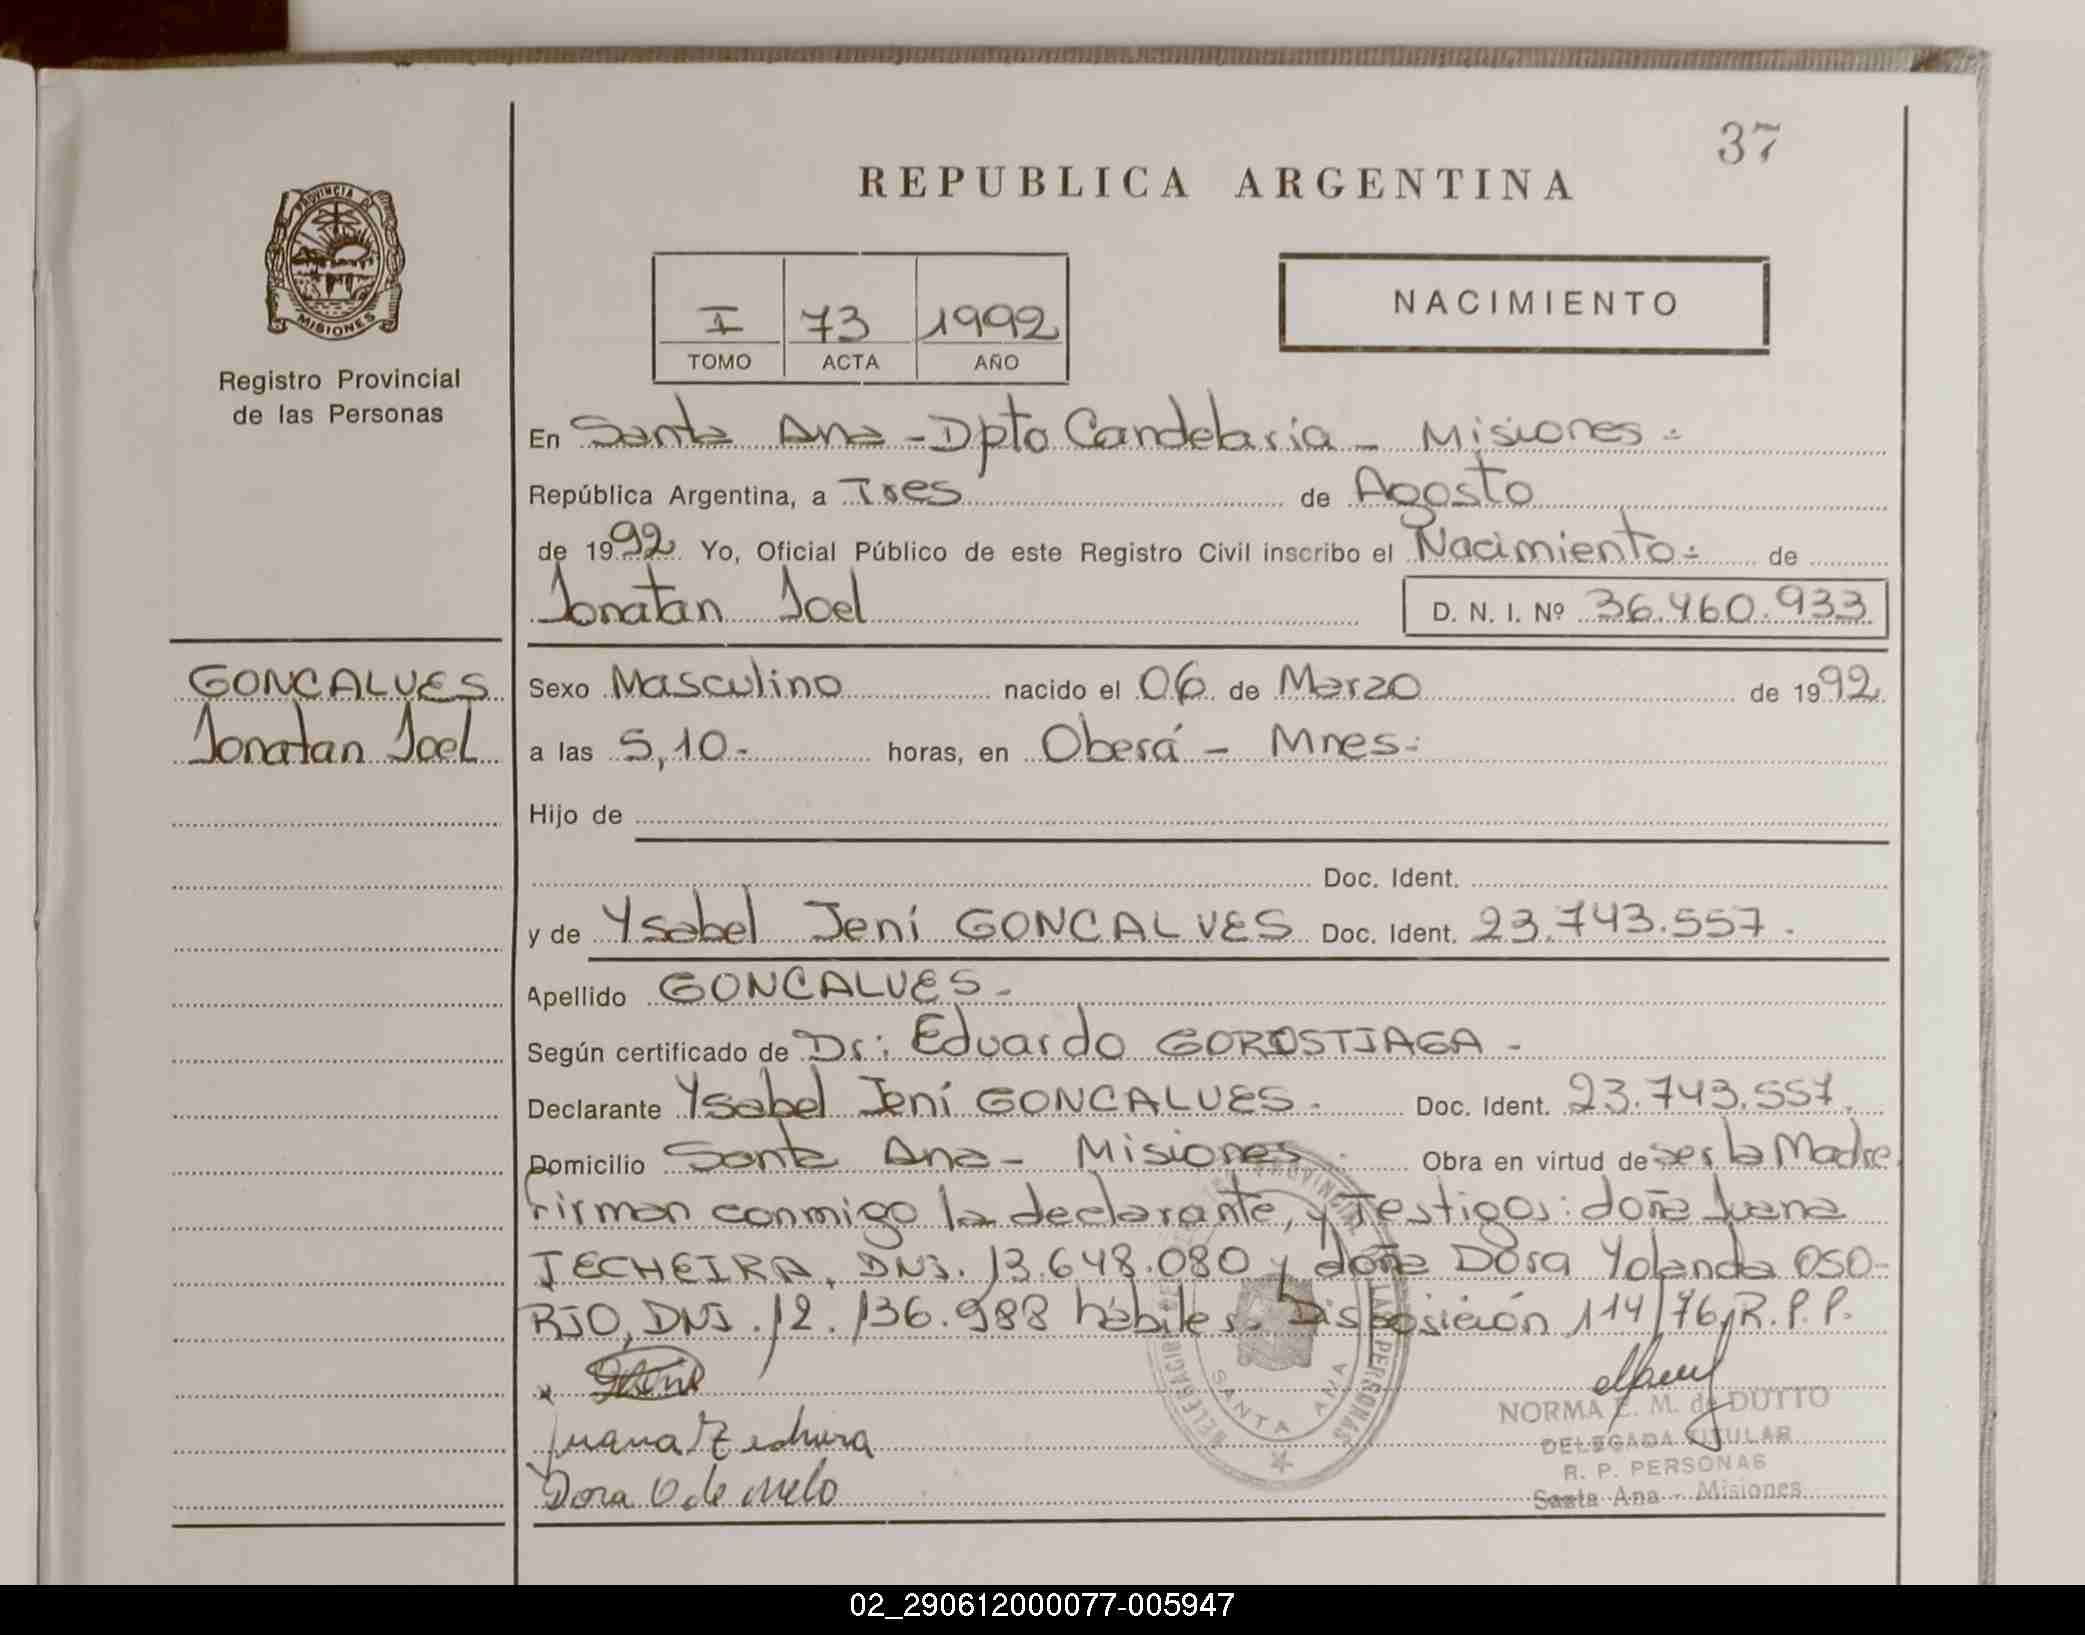 37
REPUBLICA ARGENTINA
PROVINCIA DE
MISIONES
Registro Provincial
de las Personas
I 73 1992
TOMO ACTA AÑO
NACIMIENTO
En Santa Ana - Dpto Candelaria - Misiones =
República Argentina, a Tres de Agosto
de 1992 Yo, Oficial Público de este Registro Civil inscribo el Nacimiento = de
Jonatan Joel D. N. I. Nº 36.460.933
GONCALVES
Jonatan Joel
Sexo Masculino nacido el 06 de Marzo de 1992
a las 5,10.- horas, en Oberá - Mnes.
Hijo de
Doc. Ident.
y de Ysabel Jeni GONCALVES Doc. Ident. 23.743.557.
Apellido GONCALVES.-
Según certificado de Dr: Eduardo GOROSTIAGA -
Declarante Ysabel Jeni GONCALVES.- Doc. Ident. 23.743.557.
Domicilio Santa Ana - Misiones Obra en virtud de ser la Madre
Firman conmigo la declarante, y Testigos: doña Juana
TECHEIRA, DNI. 13.648.080 y doña Dora Yolanda OSO-
RIO, DNI. 12.136.988 hábiles. Disposición 114/76, R.P.P.
x
Juana Techeira
Dora O de Melo
PROVINCIAL DE LAS PERSONAS
SANTA ANA
NORMA E. M. de DUTTO
DELEGADA TITULAR
R. P. PERSONAS
Santa Ana - Misiones
02_290612000077-005947